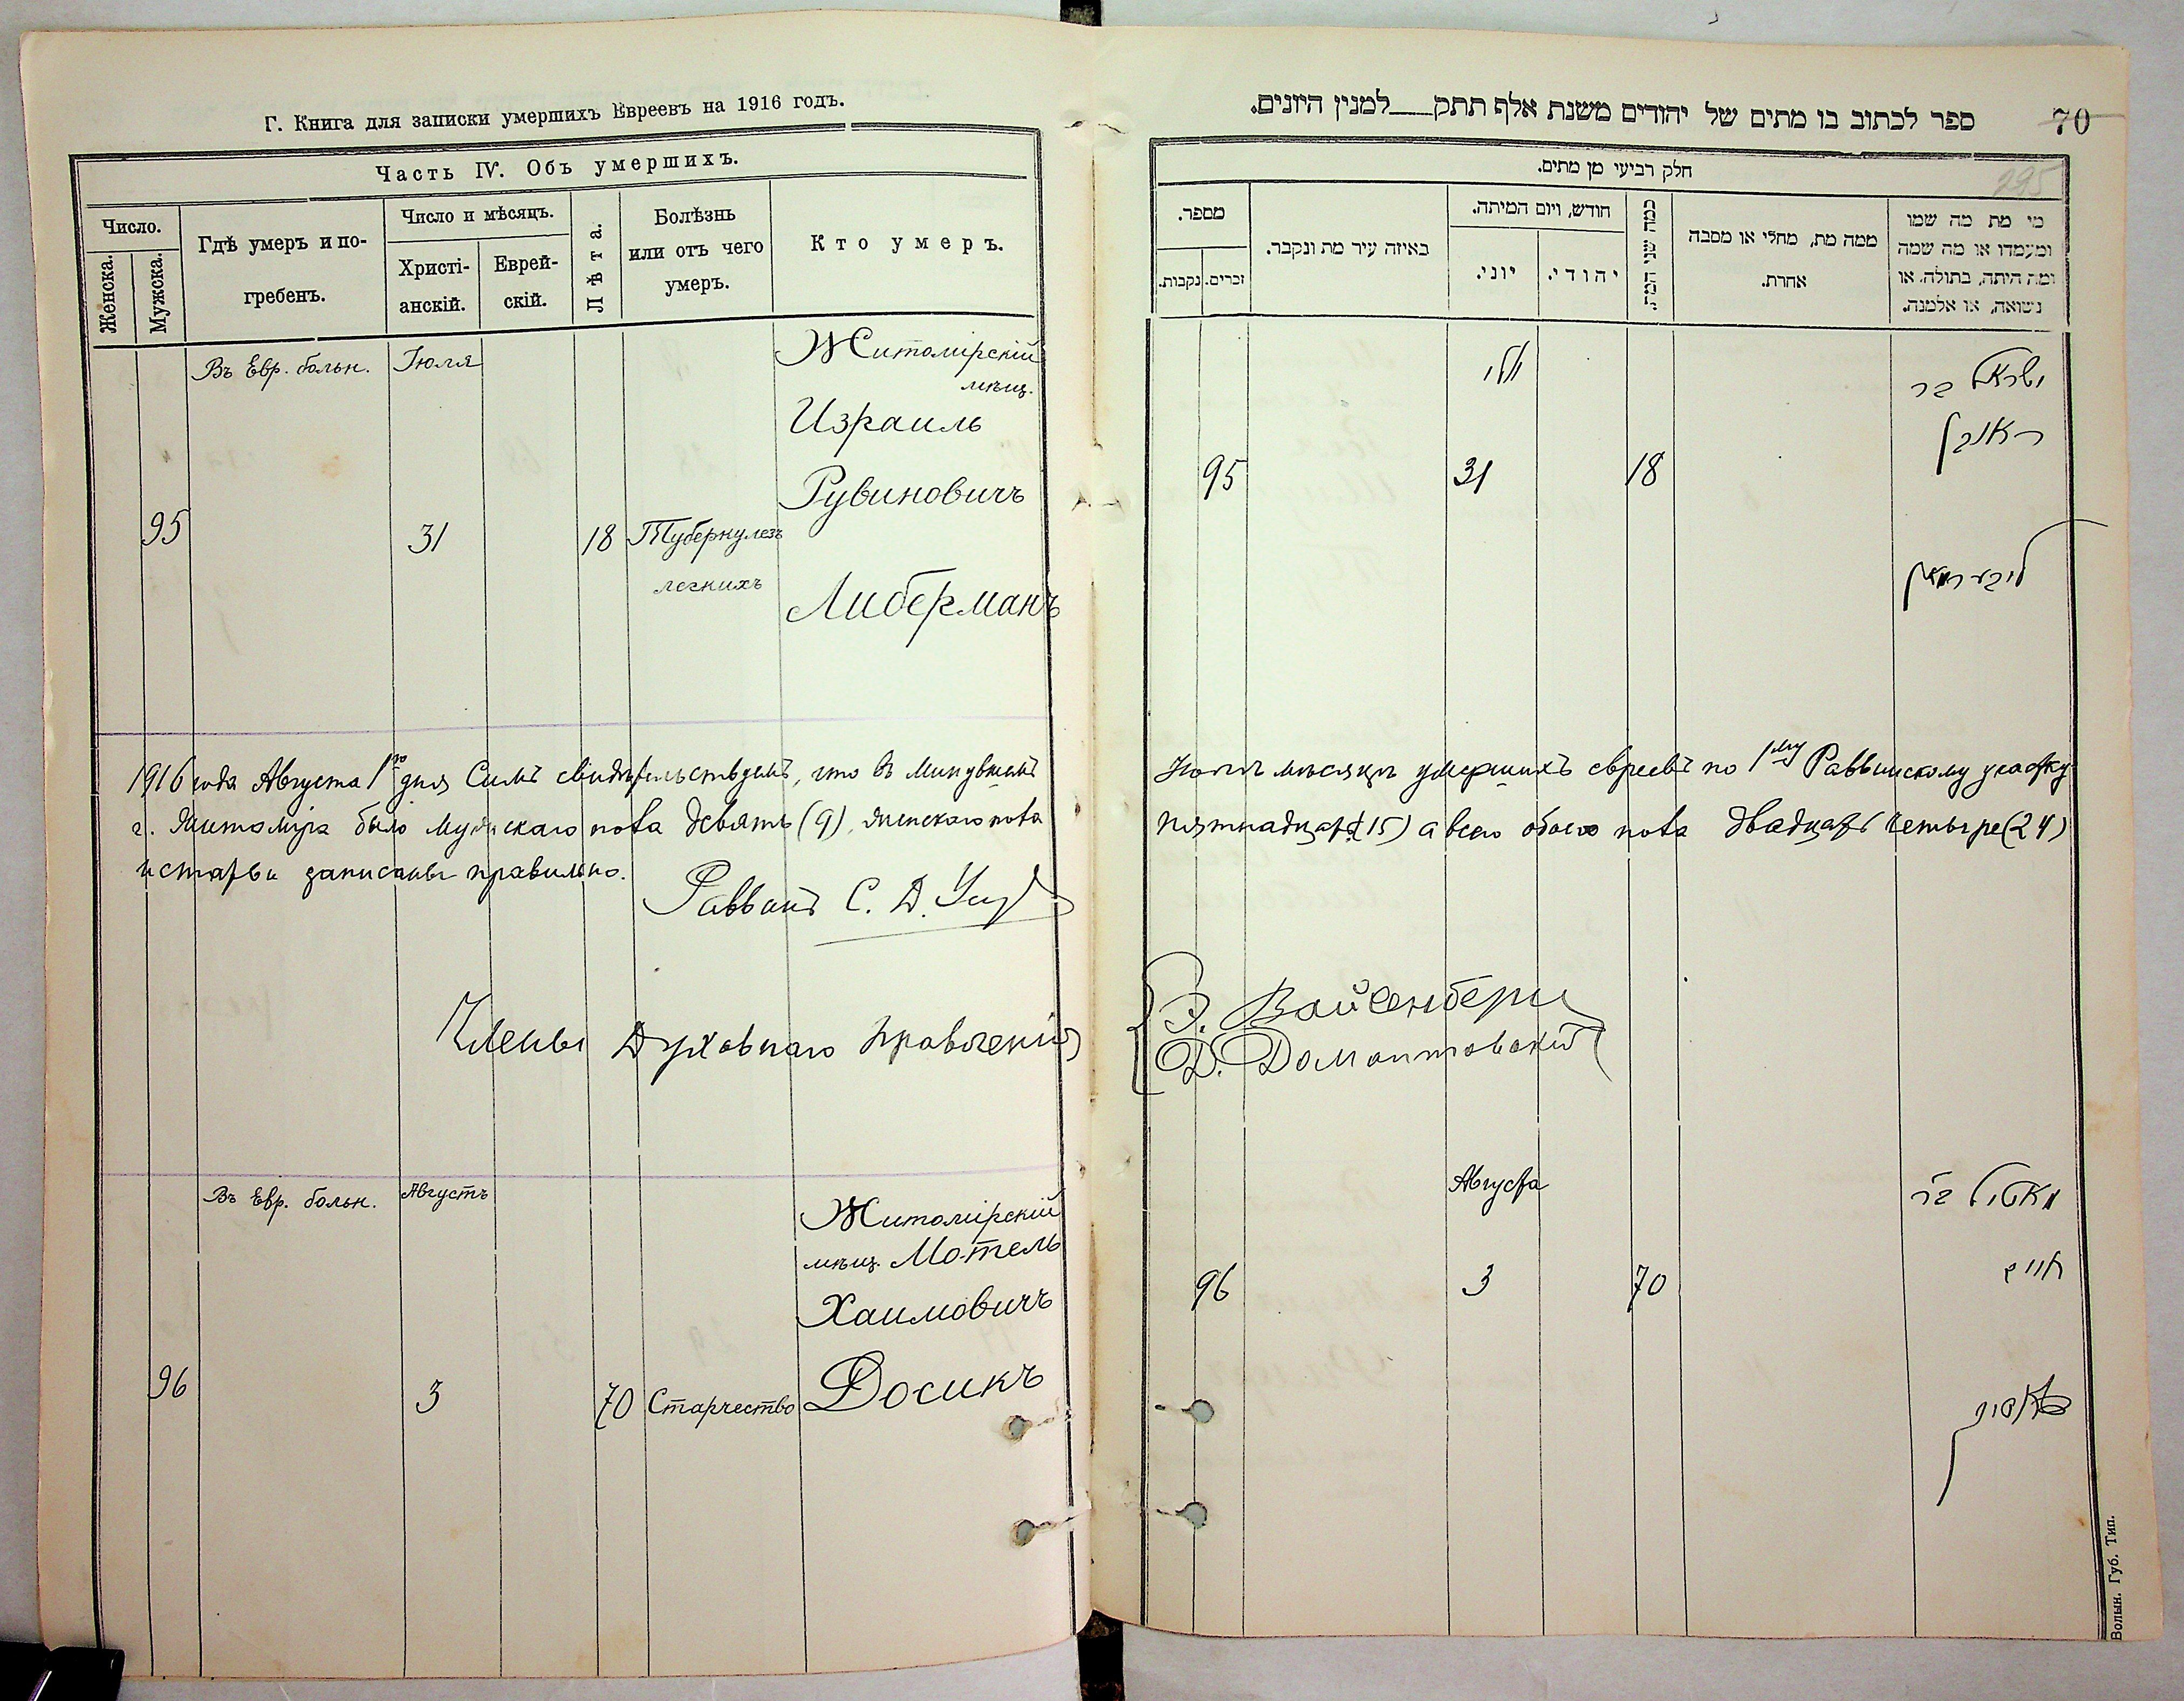 Г. Книга для записки умершихъ Евреевъ на 1916 годъ.
Часть IV. Объ умершихъ.
Число.
Женска.
Мужска.
Гдѣ умеръ и по-
гребенъ.
Число и мѣсяцъ.
Христі-
анскій.
Еврей-
скій.
Лѣта.
Болѣзнь
или отъ чего
умеръ.
Кто умеръ.
Въ Евр. больн.
Іюля
Житомірскій
мѣщ.
Израиль
Рувиновичъ
95
31
18
Туберкулезъ
легкихъ
Либерманъ
1916 года Августа 1го дня Симъ свидѣтельствуемъ, что въ минувшемъ
г. Житоміра было мужскаго пола девять (9), женскаго пола
и статьи записаны правильно.
Раввинъ С. Д.
Члены Духовнаго Правленія
Въ Евр. больн.
Августъ
Житомірскій
мѣщ. Мотель
Хаимовичъ
96
3
70
Старчество
Досикъ
ספר לכתוב בו מתים של יהודים משנת אלף תתק__למנין היונים.
70
295
חלק רביעי מן מתים.
מספר.
זכרים.
נקבות.
באיזה עיר מת ונקבר.
חודש, ויום המיתה.
יוני.
יהודי.
כמה שני המת.
ממה מת, מחלי או מסבה
אחרת.
מי מת מה שמו
ומעמדו או מה שמה
ומה היתה, בתולה, או
נשואה, או אלמנה.
יולי
ישראל בר
ראובן
95
31
18
ליבערמאן
мѣсяцѣ умершихъ евреевъ по 1му Раввинскому участку
пятнадцать (15) а всего обоего пола двадцать четыре (24)
Э. Вайсенберг
Д. Домонтовскій
Августа
מאטיל בר
חיים
96
3
70
דאסיק
Волын. Губ. Тип.